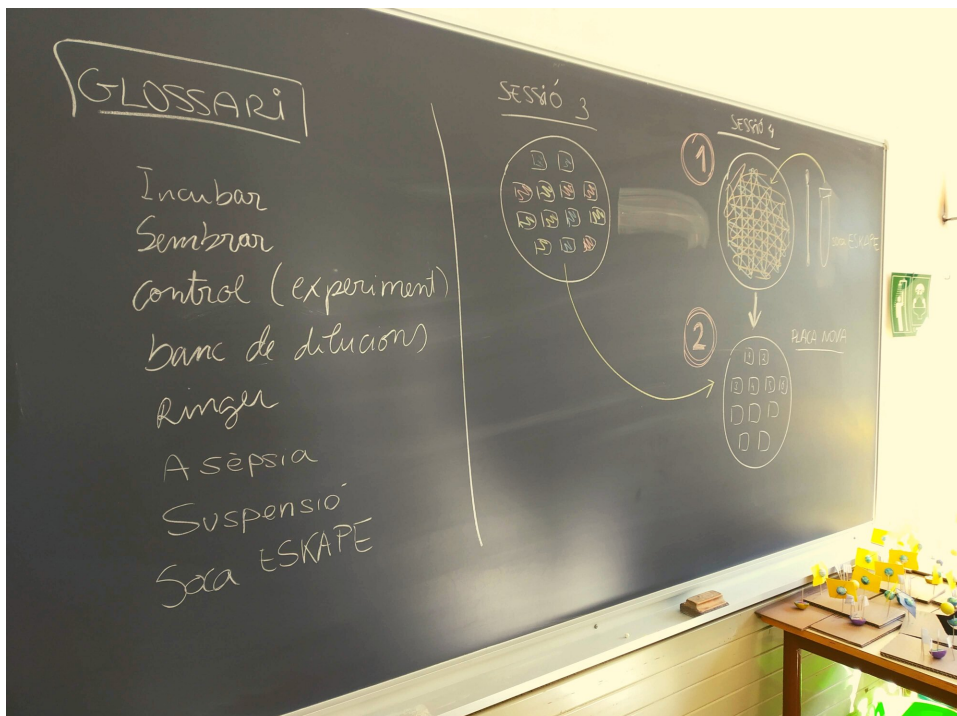 GLOSSARi
Incubar
Sembrar
control (experiment)
banc de dilucions
Ringer
Asèpsia
Suspensió
Soca ESKAPE
SESSIÓ 3
SESSIÓ 4
1
soca ESKAPE
2
PLACA NOVA
1 2
3 4 5 6